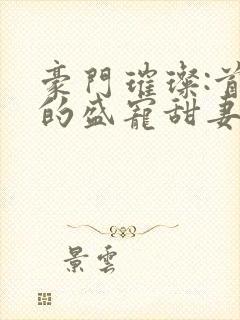 豪門璀璨:首
的盛寵甜妻
景雲